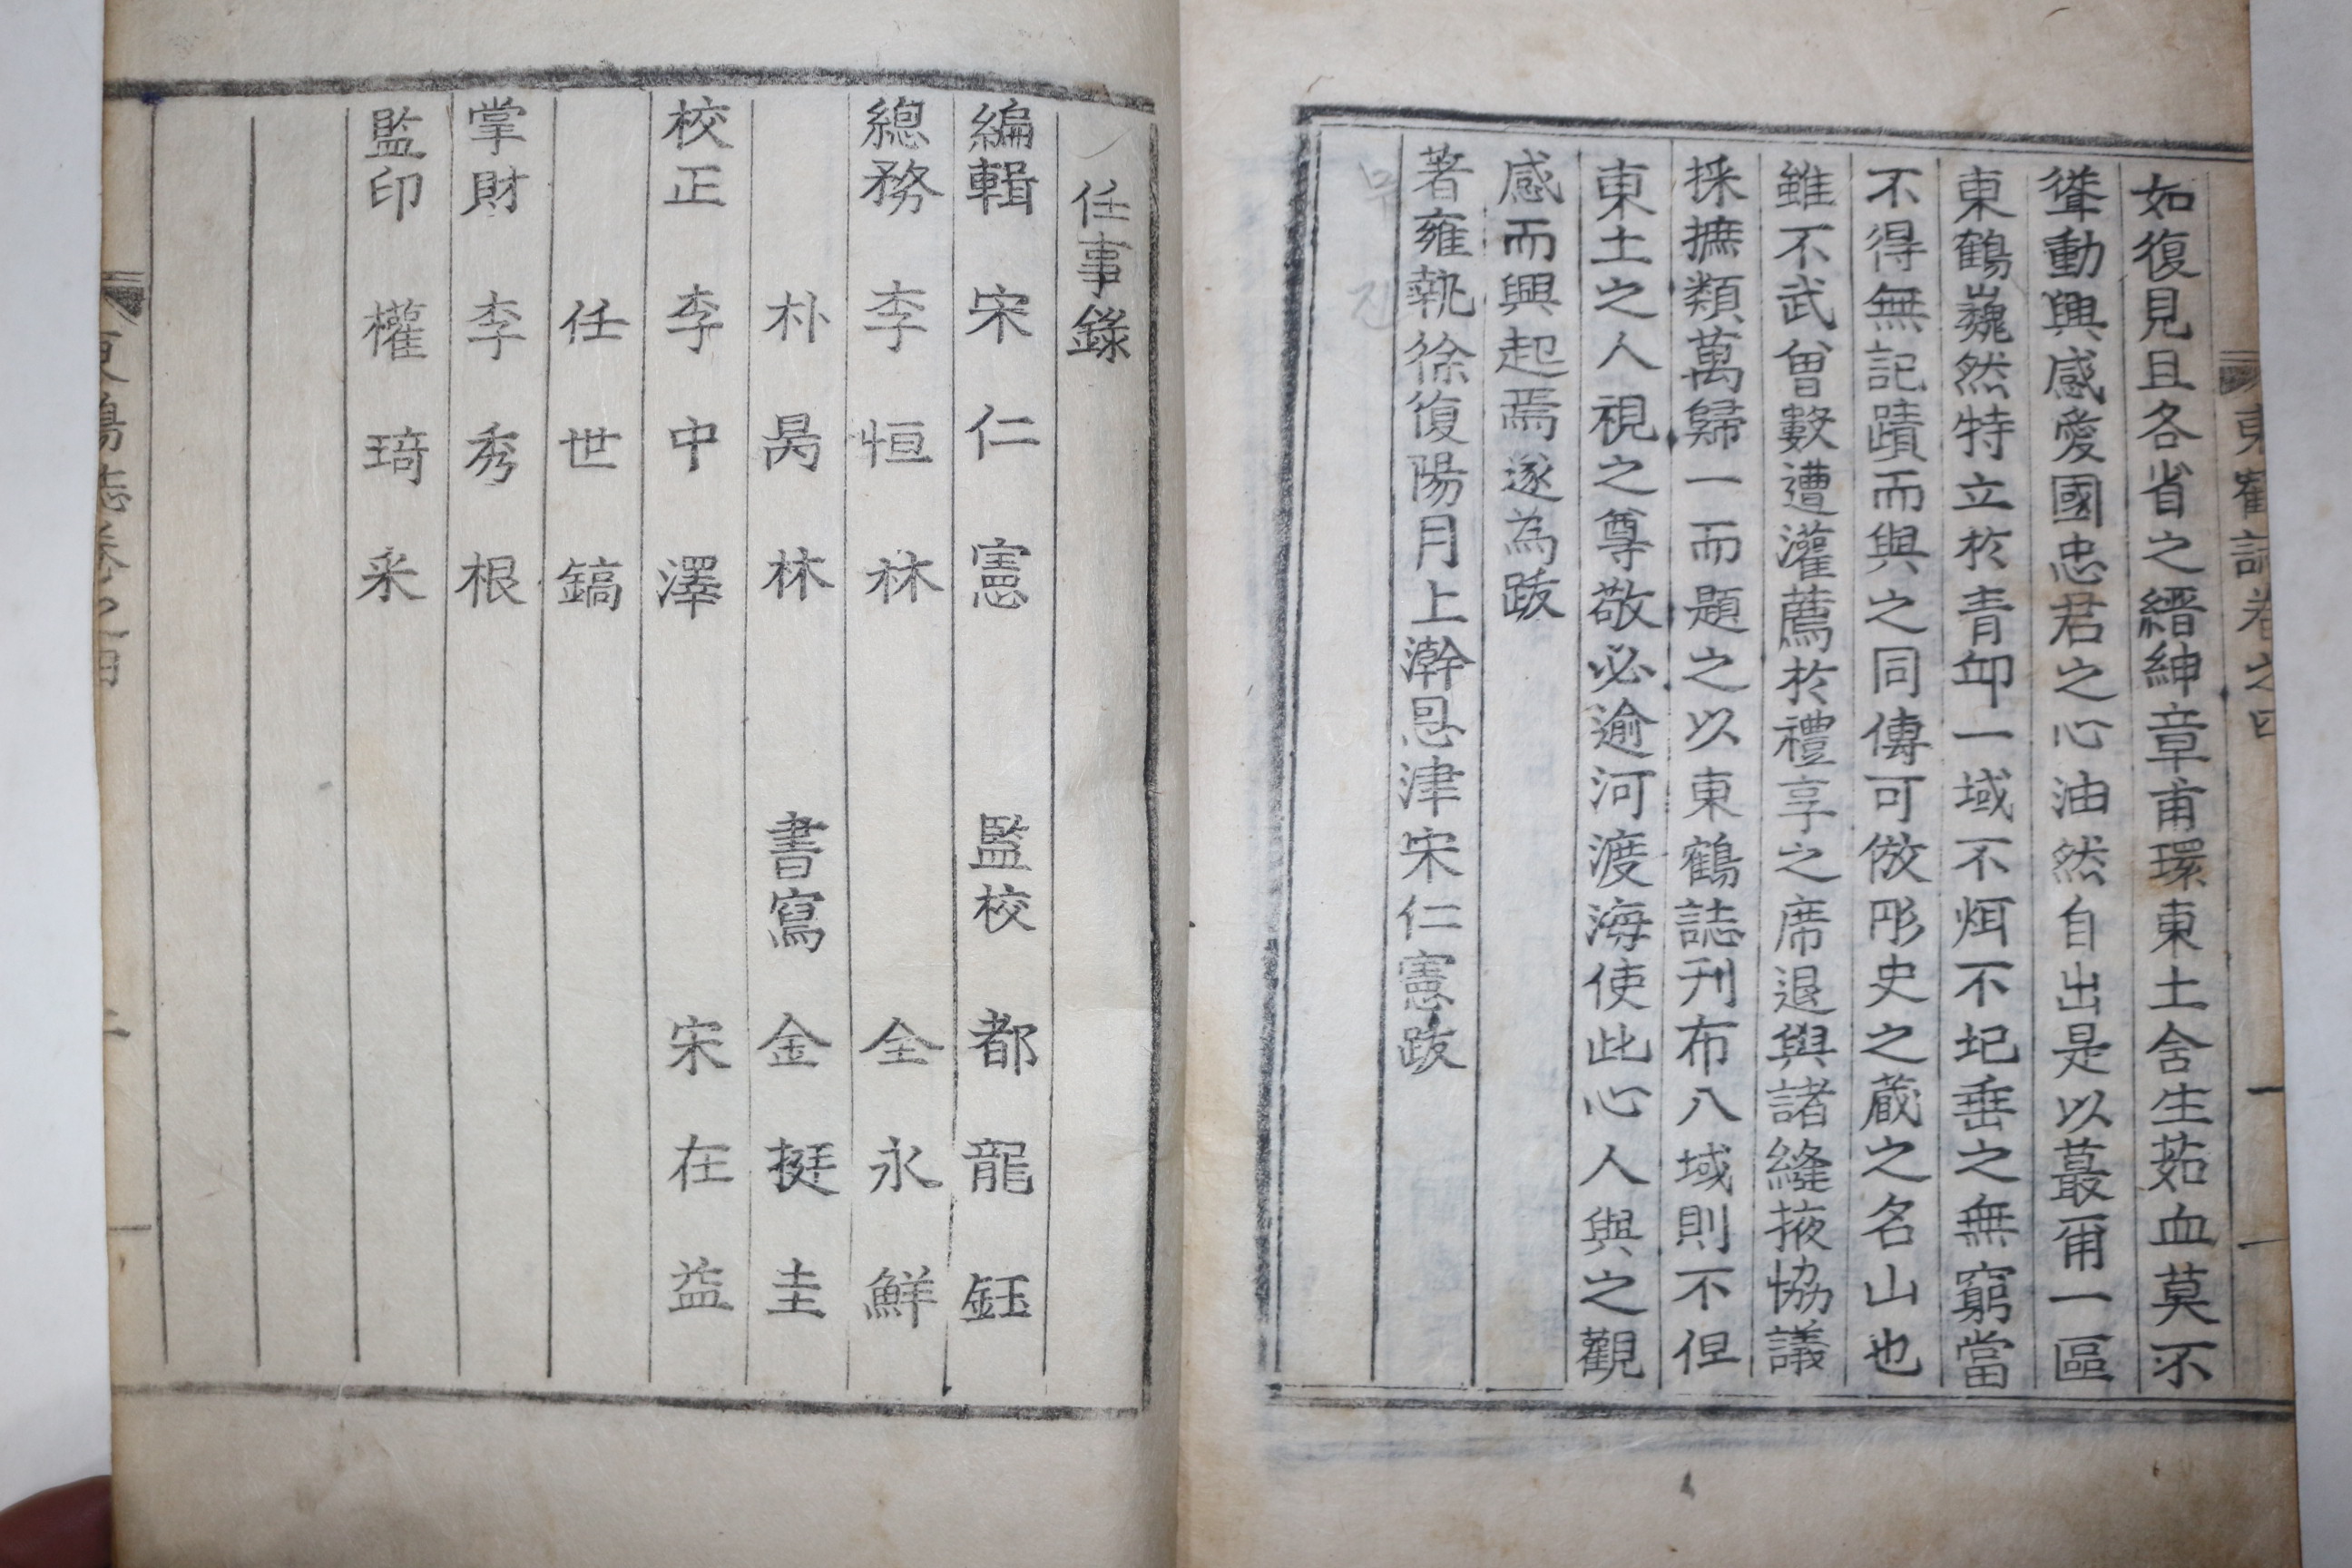 東鶴誌卷之四
如復見且各省之縉紳章甫環東土含生茹血莫不
聳動興感愛國忠君之心油然自出是以蕞爾一區
東鶴巍然特立於青邱一域不烱不圮垂之無窮當
不得無記蹟而與之同傳可倣彤史之蔵之名山也
雖不武曾數遭灌薦於禮享之席退與諸縫掖協議
採摭類萬歸一而題之以東鶴誌刊布八域則不但
東土之人視之尊敬必逾河渡海使此心人與之觀
感而興起焉遂為跋
著雍執徐復陽月上澣恩津宋仁憲跋
任事錄
編輯 宋仁憲 監校 都龍鈺
總務 李恒秝 全永鮮
朴昺林 書寫 金挺圭
校正 李中澤 宋在益
任世鎬
掌財 李秀根
監印 權琦采